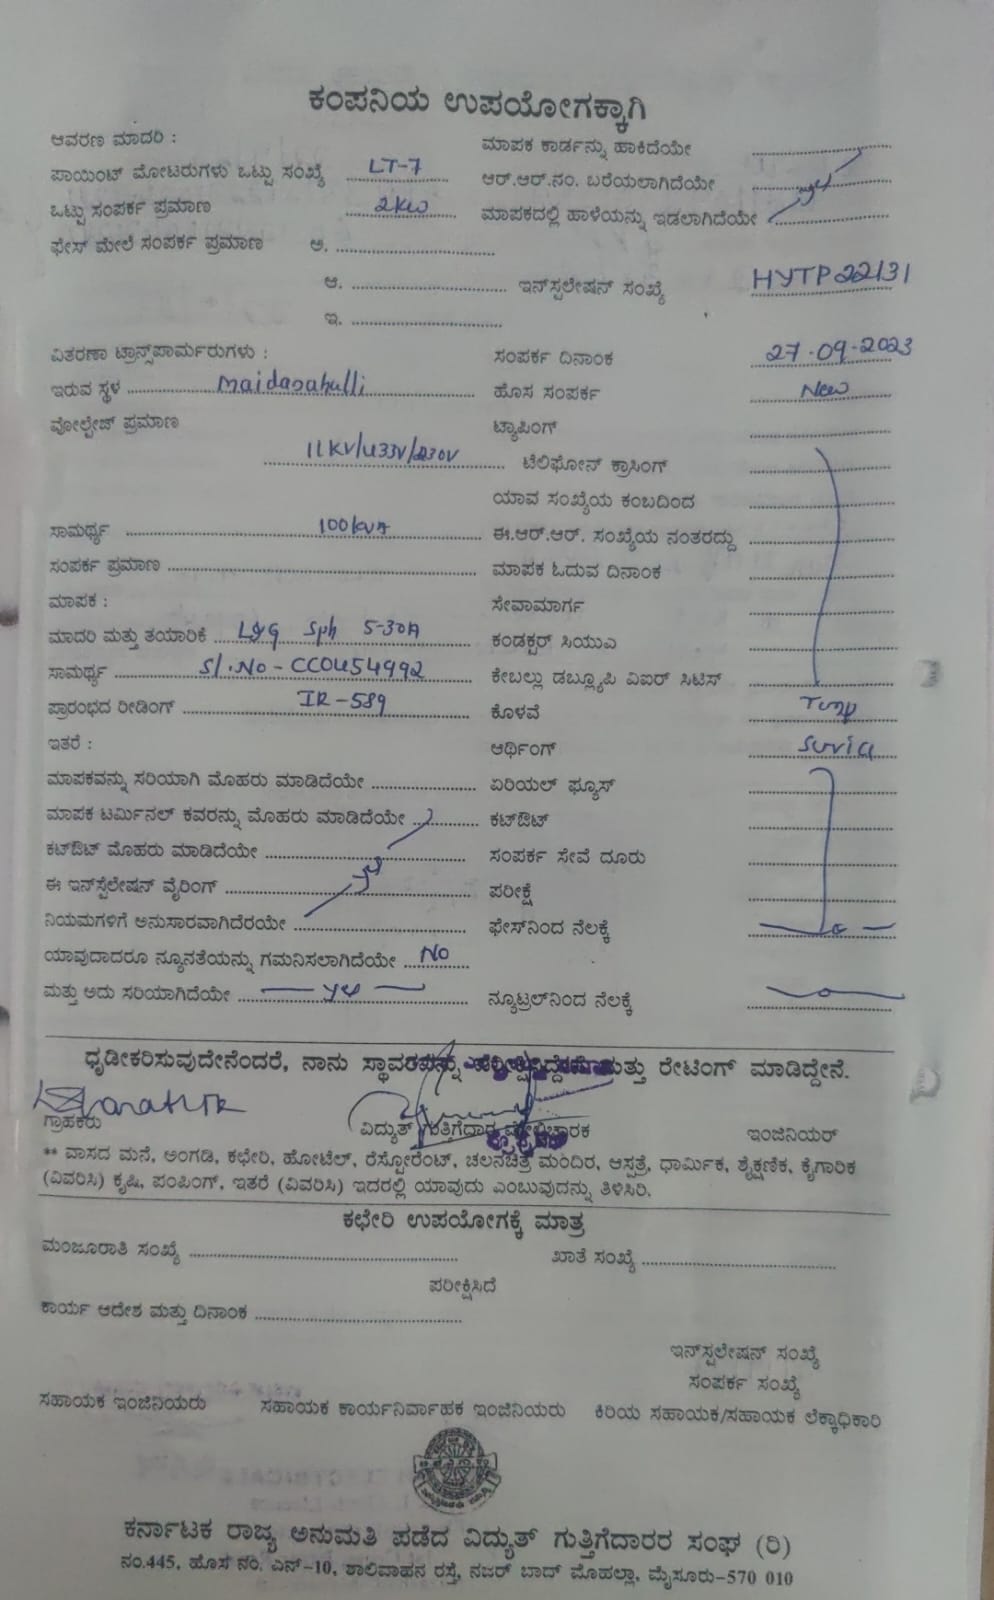 ಕಂಪನಿಯ ಉಪಯೋಗಕ್ಕಾಗಿ
ಆವರಣ ಮಾದರಿ : ಮಾಪಕ ಕಾರ್ಡನ್ನು ಹಾಕಿದೆಯೇ
ಪಾಯಿಂಟ್ ಮೋಟರುಗಳು ಒಟ್ಟು ಸಂಖ್ಯೆ LT-7 ಆರ್.ಆರ್.ನಂ. ಬರೆಯಲಾಗಿದೆಯೇ
ಒಟ್ಟು ಸಂಪರ್ಕ ಪ್ರಮಾಣ 2KW ಮಾಪಕದಲ್ಲಿ ಹಾಳೆಯನ್ನು ಇಡಲಾಗಿದೆಯೇ
ಫೇಸ್ ಮೇಲೆ ಸಂಪರ್ಕ ಪ್ರಮಾಣ ಅ.
ಆ. ಇನ್‌ಸ್ಪಲೇಷನ್ ಸಂಖ್ಯೆ HYTP22131
ಇ.
ವಿತರಣಾ ಟ್ರಾನ್ಸ್‌ಪಾರ್ಮರುಗಳು : ಸಂಪರ್ಕ ದಿನಾಂಕ 27-09-2023
ಇರುವ ಸ್ಥಳ Maidanahalli ಹೊಸ ಸಂಪರ್ಕ New
ವೋಲ್ಟೇಜ್ ಪ್ರಮಾಣ ಟ್ಯಾಪಿಂಗ್
11KV/433V/230V ಟೆಲಿಫೋನ್ ಕ್ರಾಸಿಂಗ್
ಯಾವ ಸಂಖ್ಯೆಯ ಕಂಬದಿಂದ
ಸಾಮರ್ಥ್ಯ 100KVA ಈ.ಆರ್.ಆರ್. ಸಂಖ್ಯೆಯ ನಂತರದ್ದು
ಸಂಪರ್ಕ ಪ್ರಮಾಣ ಮಾಪಕ ಓದುವ ದಿನಾಂಕ
ಮಾಪಕ : ಸೇವಾಮಾರ್ಗ
ಮಾದರಿ ಮತ್ತು ತಯಾರಿಕೆ L&G Sph 5-30A ಕಂಡಕ್ಟರ್ ಸಿಯುಎ
ಸಾಮರ್ಥ್ಯ Sl.No-CC0454992 ಕೇಬಲ್ಲು ಡಬ್ಲ್ಯೂಪಿ ವಿಐರ್ ಸಿಟಿಸ್
ಪ್ರಾರಂಭದ ರೀಡಿಂಗ್ IR-589 ಕೊಳವೆ Temp
ಇತರೆ : ಆರ್ಥಿಂಗ್
ಮಾಪಕವನ್ನು ಸರಿಯಾಗಿ ಮೊಹರು ಮಾಡಿದೆಯೇ ಏರಿಯಲ್ ಫ್ಯೂಸ್
ಮಾಪಕ ಟರ್ಮಿನಲ್ ಕವರನ್ನು ಮೊಹರು ಮಾಡಿದೆಯೇ ಕಟ್‌ಔಟ್
ಕಟ್‌ಔಟ್ ಮೊಹರು ಮಾಡಿದೆಯೇ ಸಂಪರ್ಕ ಸೇವೆ ದೂರು
ಈ ಇನ್‌ಸ್ಪೆಲೇಷನ್ ವೈರಿಂಗ್ ಪರೀಕ್ಷೆ
ನಿಯಮಗಳಿಗೆ ಅನುಸಾರವಾಗಿದೆರಯೇ ಫೇಸ್‌ನಿಂದ ನೆಲಕ್ಕೆ
ಯಾವುದಾದರೂ ನ್ಯೂನತೆಯನ್ನು ಗಮನಿಸಲಾಗಿದೆಯೇ No
ಮತ್ತು ಅದು ಸರಿಯಾಗಿದೆಯೇ ನ್ಯೂಟ್ರಲ್‌ನಿಂದ ನೆಲಕ್ಕೆ
ಧೃಡೀಕರಿಸುವುದೇನೆಂದರೆ, ನಾನು ಮತ್ತು ರೇಟಿಂಗ್ ಮಾಡಿದ್ದೇನೆ.
ಗ್ರಾಹಕರು ವಿದ್ಯುತ್ ಗುತ್ತಿಗೆದಾರ ಇಂಜಿನಿಯರ್
** ವಾಸದ ಮನೆ, ಅಂಗಡಿ, ಕಛೇರಿ, ಹೋಟೆಲ್, ರೆಸ್ಟೋರೆಂಟ್, ಚಲನಚಿತ್ರ ಮಂದಿರ, ಆಸ್ಪತ್ರೆ, ಧಾರ್ಮಿಕ, ಶೈಕ್ಷಣಿಕ, ಕೈಗಾರಿಕ
(ವಿವರಿಸಿ) ಕೃಷಿ, ಪಂಪಿಂಗ್, ಇತರೆ (ವಿವರಿಸಿ) ಇದರಲ್ಲಿ ಯಾವುದು ಎಂಬುವುದನ್ನು ತಿಳಿಸಿರಿ.
ಕಛೇರಿ ಉಪಯೋಗಕ್ಕೆ ಮಾತ್ರ
ಮಂಜೂರಾತಿ ಸಂಖ್ಯೆ ಖಾತೆ ಸಂಖ್ಯೆ
ಪರೀಕ್ಷಿಸಿದೆ
ಕಾರ್ಯ ಆದೇಶ ಮತ್ತು ದಿನಾಂಕ
ಇನ್‌ಸ್ಪಲೇಷನ್ ಸಂಖ್ಯೆ
ಸಂಪರ್ಕ ಸಂಖ್ಯೆ
ಸಹಾಯಕ ಇಂಜಿನಿಯರು ಸಹಾಯಕ ಕಾರ್ಯನಿರ್ವಾಹಕ ಇಂಜಿನಿಯರು ಕಿರಿಯ ಸಹಾಯಕ/ಸಹಾಯಕ ಲೆಕ್ಕಾಧಿಕಾರಿ
ಕರ್ನಾಟಕ ರಾಜ್ಯ ಅನುಮತಿ ಪಡೆದ ವಿದ್ಯುತ್ ಗುತ್ತಿಗೆದಾರರ ಸಂಘ (ರಿ)
ನಂ.445, ಹೊಸ ನಂ. ಎನ್-10, ಶಾಲಿವಾಹನ ರಸ್ತೆ, ನಜರ್ ಬಾದ್ ಮೊಹಲ್ಲಾ, ಮೈಸೂರು-570 010